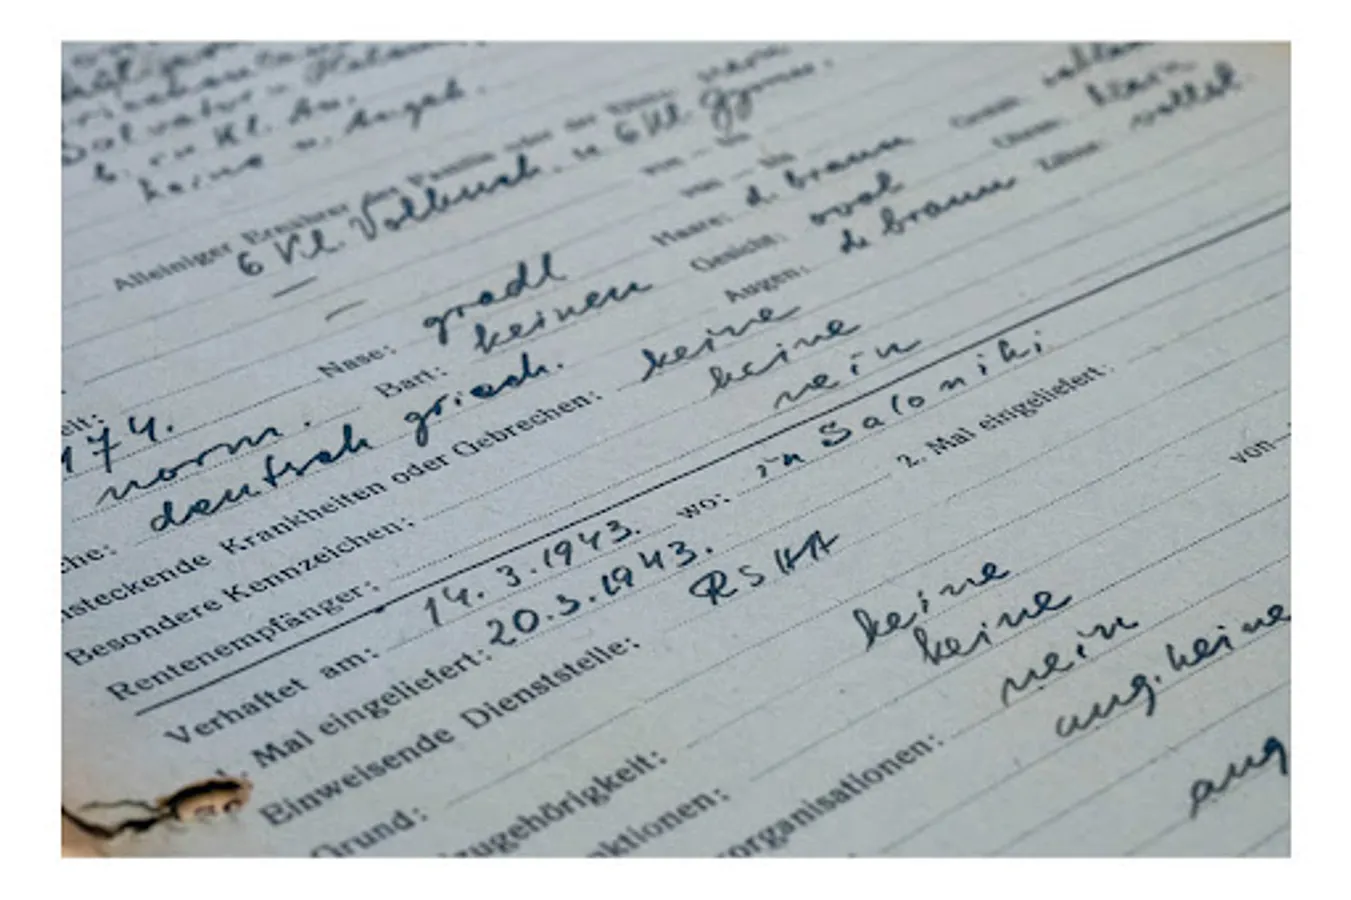 keine n. Angeh.
Alleiniger Ernährer der Familie oder der Eltern:
6 Kl. Volkssch. u 6 Kl. Gymn.
von — bis
von — bis
Nase: gradl Haare: d. braun Gesicht:
174. Bart: keinen Gesicht: oval Ohren: klein
norm. Augen: d. braun Zähne: vollst.
che: deutsch griech.
nsteckende Krankheiten oder Gebrechen: keine
Besondere Kennzeichen: keine
Rentenempfänger: nein
Verhaftet am: 14. 3. 1943. wo: in Saloniki
Mal eingeliefert: 20.3.1943. 2. Mal eingeliefert:
Einweisende Dienststelle: RSHA von
Grund:
zugehörigkeit: keine
nktionen: keine
organisationen: nein
ang. keine
ang